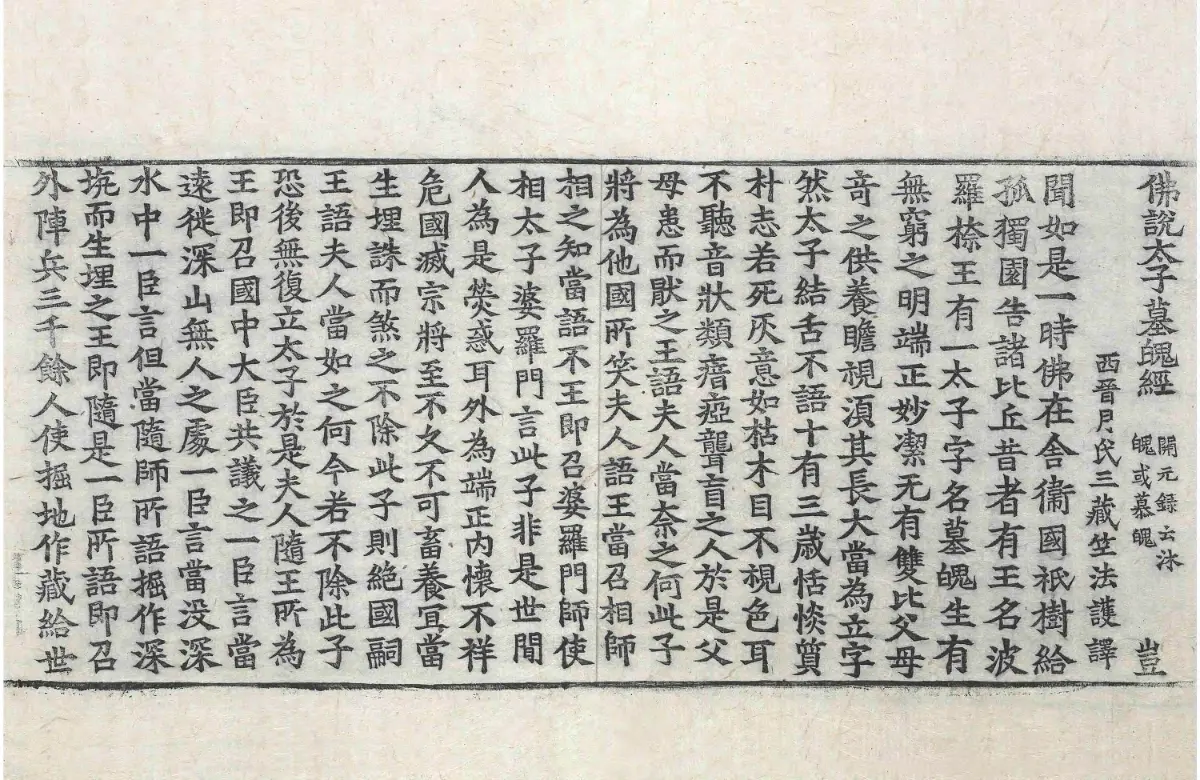 佛說太子墓魄經 開元錄云沐 豈
魄或慕魄
西晉月氏三藏竺法護譯
聞如是一時佛在舍衞國祇樹給
孤獨園告諸比丘昔者有王名波
羅㮈王有一太子字名墓魄生有
無窮之明端正妙潔无有雙比父母
竒之供養瞻視湏其長大當為立字
然太子結舌不語十有三歲恬惔質
朴志若死灰意如枯木目不視色耳
不聽音狀類瘖瘂聾盲之人於是父
母患而猒之王語夫人當柰之何此子
將為他國所笑夫人語王當召相師
相之知當語不王即召婆羅門師使
相太子婆羅門言此子非是世間
人為是熒惑耳外為端正内懷不祥
危國滅宗將至不久不可畜養宜當
生埋誅而煞之不除此子則絶國嗣
王語夫人當如之何今若不除此子
恐後無復立太子於是夫人隨王所為
王即召國中大臣共議之一臣言當
遠徙深山無人之處一臣言當没深
水中一臣言但當隨師所語掘作深
坑而生埋之王即隨是一臣所語即召
外陣兵三千餘人使掘地作藏給世